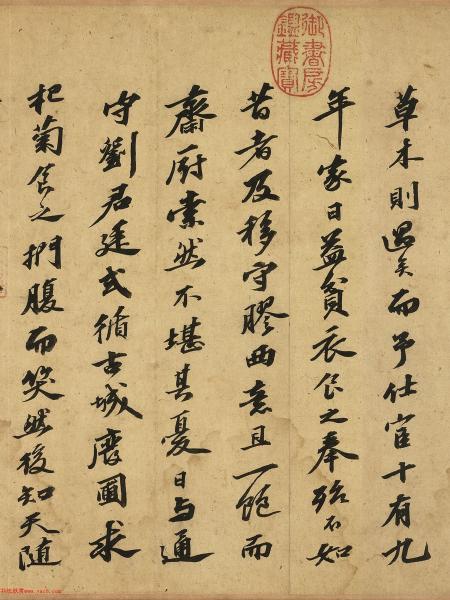 御書房鑑藏寶
草木則過矣而予仕宦十有九
年家日益貧衣食之奉殆不如
昔者及移守膠西意且一飽而
齋厨索然不堪其憂日與通
守劉君廷式循古城廢圃求
杞菊食之捫腹而笑然後知天隨